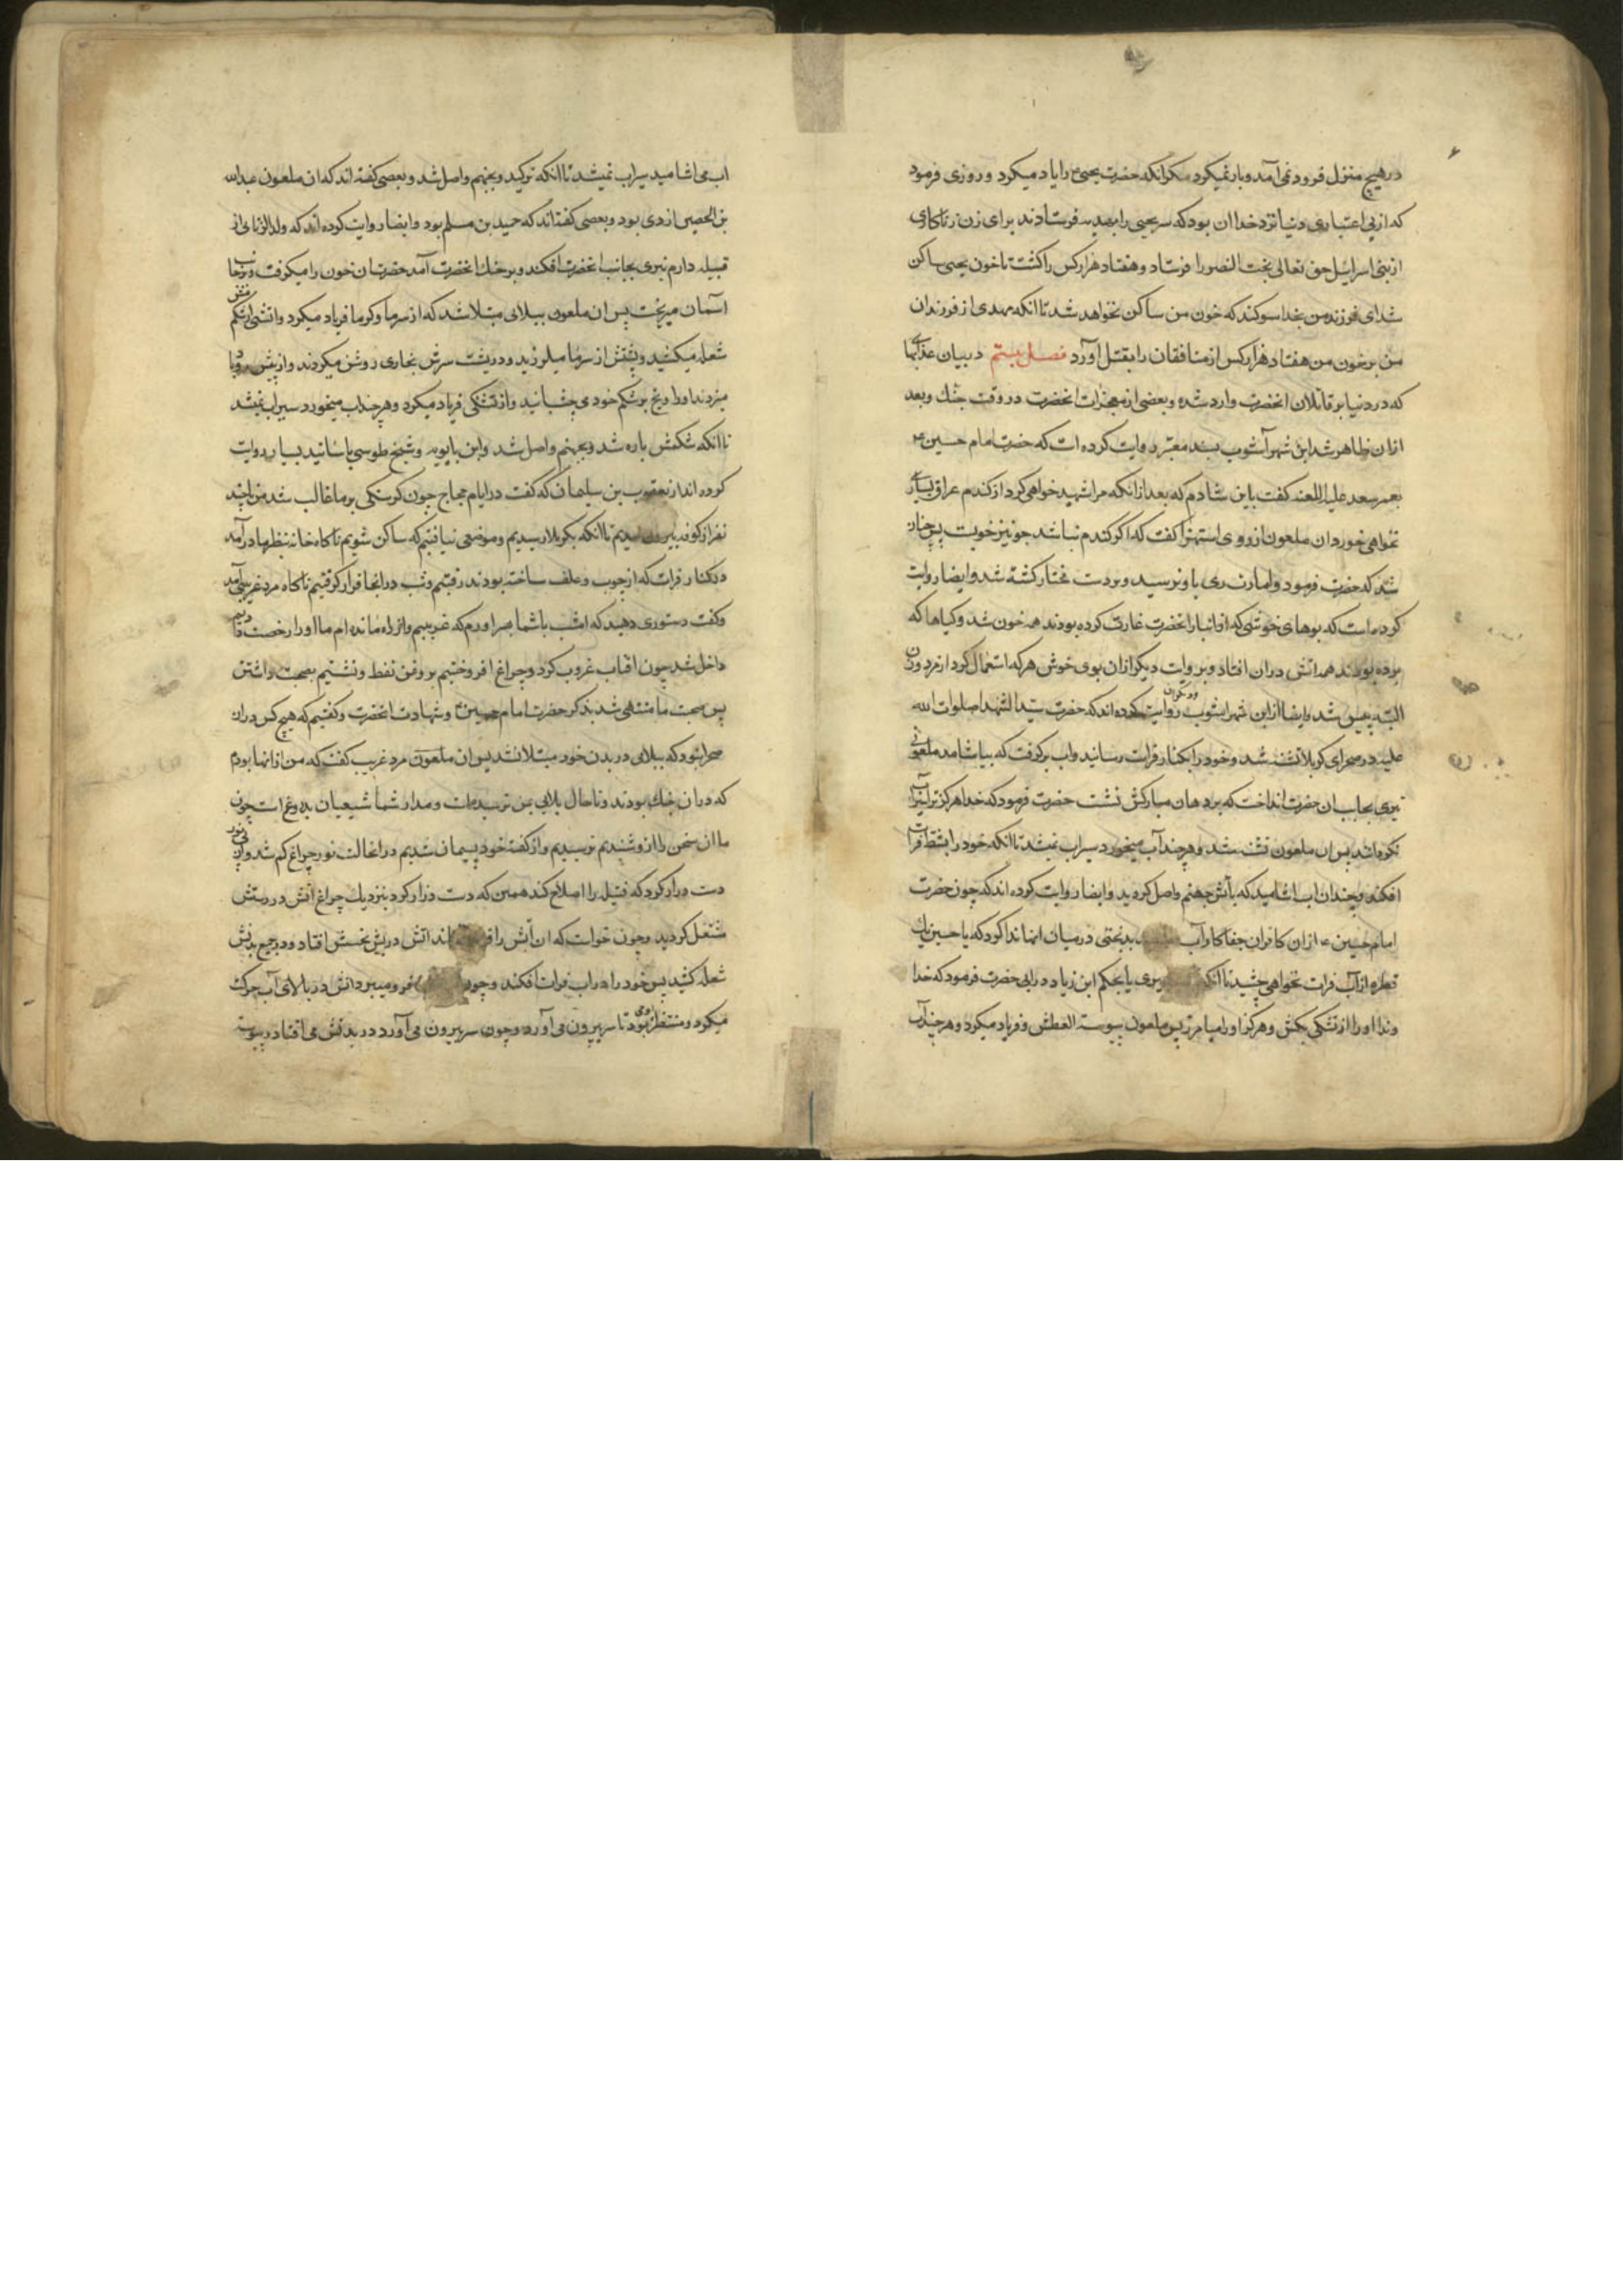 در هیچ منزل فرود نمی آمد و بار نمیکرد مکر انکه حضرت یحیی را یاد میکرد و روزی فرمود
که از بی اعتباری دنیا نزد خدا ان بود که سر یحیی را بهدیه فرستادند برای زن زناکاری
از بنی اسرائیل حق تعالی بخت النصر را فرستاد و هفتاد هزار کس را کشت تا خون یحیی ساکن
شد ای فرزند من بخدا سوکند که خون من ساکن نخواهد شد تا انکه مهدی از فرزندان
من بر خون من هفتاد هزار کس از منافقان را بقتل آورد فصل بیستم در بیان عذابها
که در دنیا بر قاتلان انحضرت وارد شده و بعضی از معجزات انحضرت در وقت جنك وبعد
از ان ظاهر شد ابن شهر آشوب بسند معتبر روایت کرده است که حضرت امام حسین ع
بعمر سعد علیه اللعنه کفت باین شادم که بعد از انکه مرا شهید خواهی کرد از کندم عراق بسیار
نخواهی خورد ان ملعون از روی استهزا کفت که اکر کندم نباشد جو نیز خوبست پس چنان
شد که حضرت فرمود و امارت ری باو نرسید و بر دست مختار کشته شد و ایضا روایت
کرده است که بوهای خوشی که از انبار انحضرت غارت کرده بودند همه خون شد و کیاها که
برده بودند همه اتش در ان افتاد و بروایت دیکر از ان بوی خوش هر که استعمال کرد از مرد وزن
البته پیس شد و ایضا از ابن شهر اشوب و دیکران روایت کرده اند که حضرت سید الشهدا صلوات الله
علیه در صحرای کربلا تشنه شد و خود را بکنار فرات رسانید و اب برکرفت که بیاشامد ملعونی
تیری بجانب ان حضرت انداخت که بر دهان مبارکش نشست حضرت فرمود که خدا هرکز ترا سیراب
نکرداند پس ان ملعون تشنه شد و هر چند آب میخورد سیراب نمیشد تا انکه خود را بشط فرات
افکند و چندان اب اشامید که بآتش جهنم واصل کردید و ایضا روایت کرده اند که چون حضرت
امام حسین ع از ان کافران جفاکار آب بدبختی در میان انها ندا کرد که یا حسین یك
قطره از آب فرات نخواهی چشید تا انکه بمیری یا بحکم ابن زیاد در ایی حضرت فرمود که خدا
وندا او را از تشنکی بکش و هرکز او را میامرز پس ملعون پیوسته العطش فریاد میکرد و هر چند آب
اب می اشامید سیراب نمیشد تا انکه ترکید و بجهنم واصل شد و بعضی کفته اند که ان ملعون عبدالله
بن الحصین ازدی بود و بعضی کفته اند که حمید بن مسلم بود و ایضا روایت کرده اند که ولد الزنایی از
قبیله دارم تیری بجانب انحضرت افکند و بر حنك انحضرت آمد حضرت ان خون را میکرفت و بجانب
آسمان میریخت پس ان ملعون ببلایی مبتلا شد که از سرما و کرما فریاد میکرد و اتشی از شکمش
شعله میکشید و پشتش از سرما میلرزید و در پشت سرش بخاری روشن میکردند و از پیش رو باد
میزدند و او یخ بر شکم خود می چسبانید و از تشنکی فریاد میکرد و هر چند اب میخورد سیراب نمیشد
تا انکه شکمش پاره شد و بجهنم واصل شد و ابن بابویه و شیخ طوسی باسانید بسیار روایت
کرده اند از یعقوب بن سلیمان که کفت در ایام حجاج چون کرسنکی بر ما غالب شد من با چند
نفر از کوفه بیرون امدیم تا انکه بکربلا رسیدیم و موضعی نیافتیم که ساکن شویم ناکاه خانه بنظر ما درآمد
در کنار فرات که از چوب و علف ساخته بودند رفتیم و شب در انجا قرار کرفتیم ناکاه مرد غریبی آمد
و کفت دستوری دهید که امشب با شما بسر اورم که غریبم و از راه مانده ام ما او را رخصت دادیم
داخل شد چون افتاب غروب کرد و چراغ افروختیم بروغن نفط و نشستیم بصحبت داشتن
پس صحبت ما منتهی شد بذکر حضرت امام حسین ع و شهادت انحضرت و کفتیم که هیچ کس در ان
صحرا نبود که ببلایی در بدن خود مبتلا نشد پس ان ملعون مرد غریب کفت که من از انها بودم
که در ان جنك بودند و تا حال بلایی بمن نرسیده است و مدار شما شیعیان بدروغ است چون
ما ان سخن را از او شنیدیم ترسیدیم و از کفته خود پشیمان شدیم در انحالت نور چراغ کم شد و ان
دست دراز کرد که فتیله را اصلاح کند همین که دست دراز کرد بنزدیك چراغ اتش در دستش
مشتعل کردید و چون خواست که ان آتش را فرو نشاند اتش در ریش نحسش افتاد و در جمیع بدنش
شعله کشید پس خود را در اب فرات افکند و چون فرو میبرد اتش در بالای آب حرکت
میکرد و منتظر او میبود تا سر بیرون می آورد و چون سر بیرون می آورد در بدنش می افتاد و پیوسته